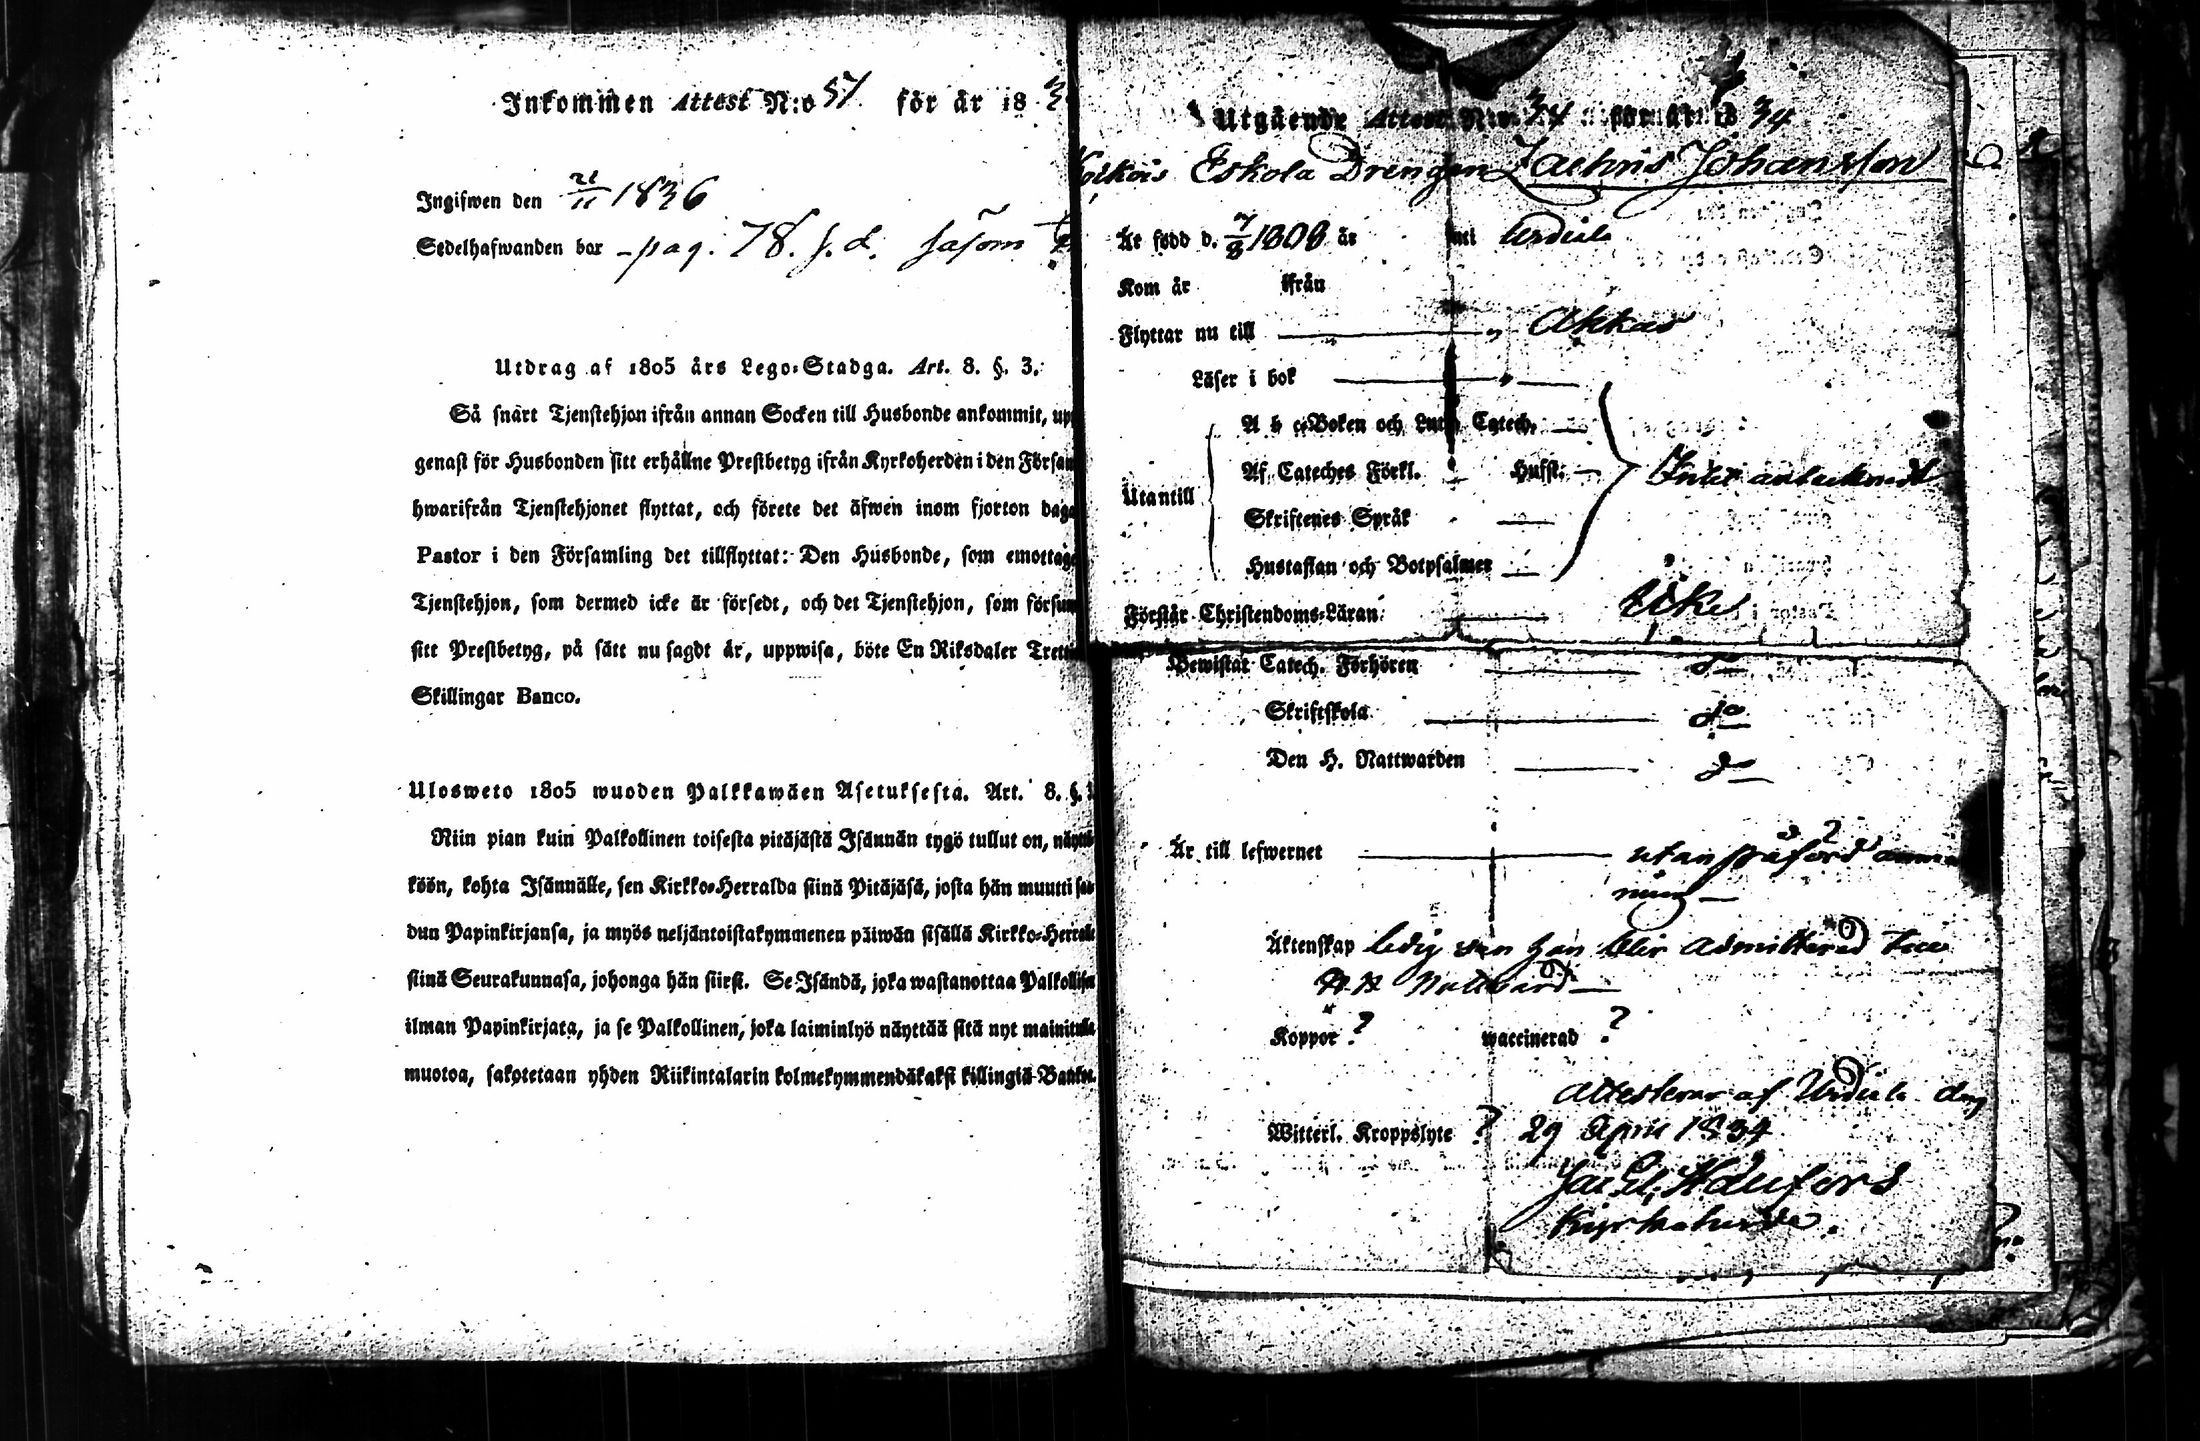 Inkommen Attest N:o 57 för år 183
Ingifwen den 21/11 1836
Sedelhafwanden bor - pag. 78. s. d. såsom
Utdrag af 1805 års Lego-Stadga. Art. 8. §. 3.
Så snart Tjenstehjon ifrån annan Socken till Husbonde ankommit, up
genast för Husbonden sitt erhållne Prestbetyg ifrån Kyrkoherden i den Försam
hwarifrån Tjenstehjonet flyttat, och förete det äfwen inom fjorton daga
Pastor i den Församling det tillflyttat: Den Husbonde, som emottage
Tjenstehjon, som dermed icke är försedt, och det Tjenstehjon, som försum
sitt Prestbetyg, på sätt nu sagdt är, uppwisa, böte En Riksdaler Tretti
Skillingar Banco.
Ulosweto 1805 wuoden Palkkawäen Asetuksesta. Art. 8. §. 3
Niin pian kuin Palkollinen toisesta pitäjästä Isännän tygö tullut on, näyttä
köön, kohta Isännälle, sen Kirkko-Herralda siinä Pitäjäsä, josta hän muutti saa
dun Papinkirjansa, ja myös neljäntoistakymmenen päiwän sisällä Kirkko-Herralle
siinä Seurakunnasa, johonga hän siirst. Se Isändä, joka wastanottaa Palkollisen
ilman Papinkirjata, ja se Palkollinen, joka laiminlyö näyttää sitä nyt mainitulla
muotoa, sakotetaan yhden Riikintalarin kolmekymmendäkaksi killingiä Banko.
Utgående Attest N:o 34 för år 1834
Eskola Drengen Zachris Johansson
Är född d. 7/8 1808 år uti Urdiala
Kom år ifrån
Flyttar nu till Akkas
Läser i bok
A b c-Boken och Luth. Catech.
Utantill Af Cateches Förkl. Husft.
Skriftenes Språk
Hustaflan och Botpsalmer
Förstår Christendoms-Läran
Bewistat Catech. Förhören do
Skriftskola do
Den H. Nattwarden do
Är till lefwernet utan påförd anm
ning
Äktenskap ledig sen han blir admitterad till
H. H. Nattvard
Koppor ? waccinerad ?
Attesteras af Urdiala den
Witterl. Kroppslyte ? 29 April 1834
Kyrkoherde.